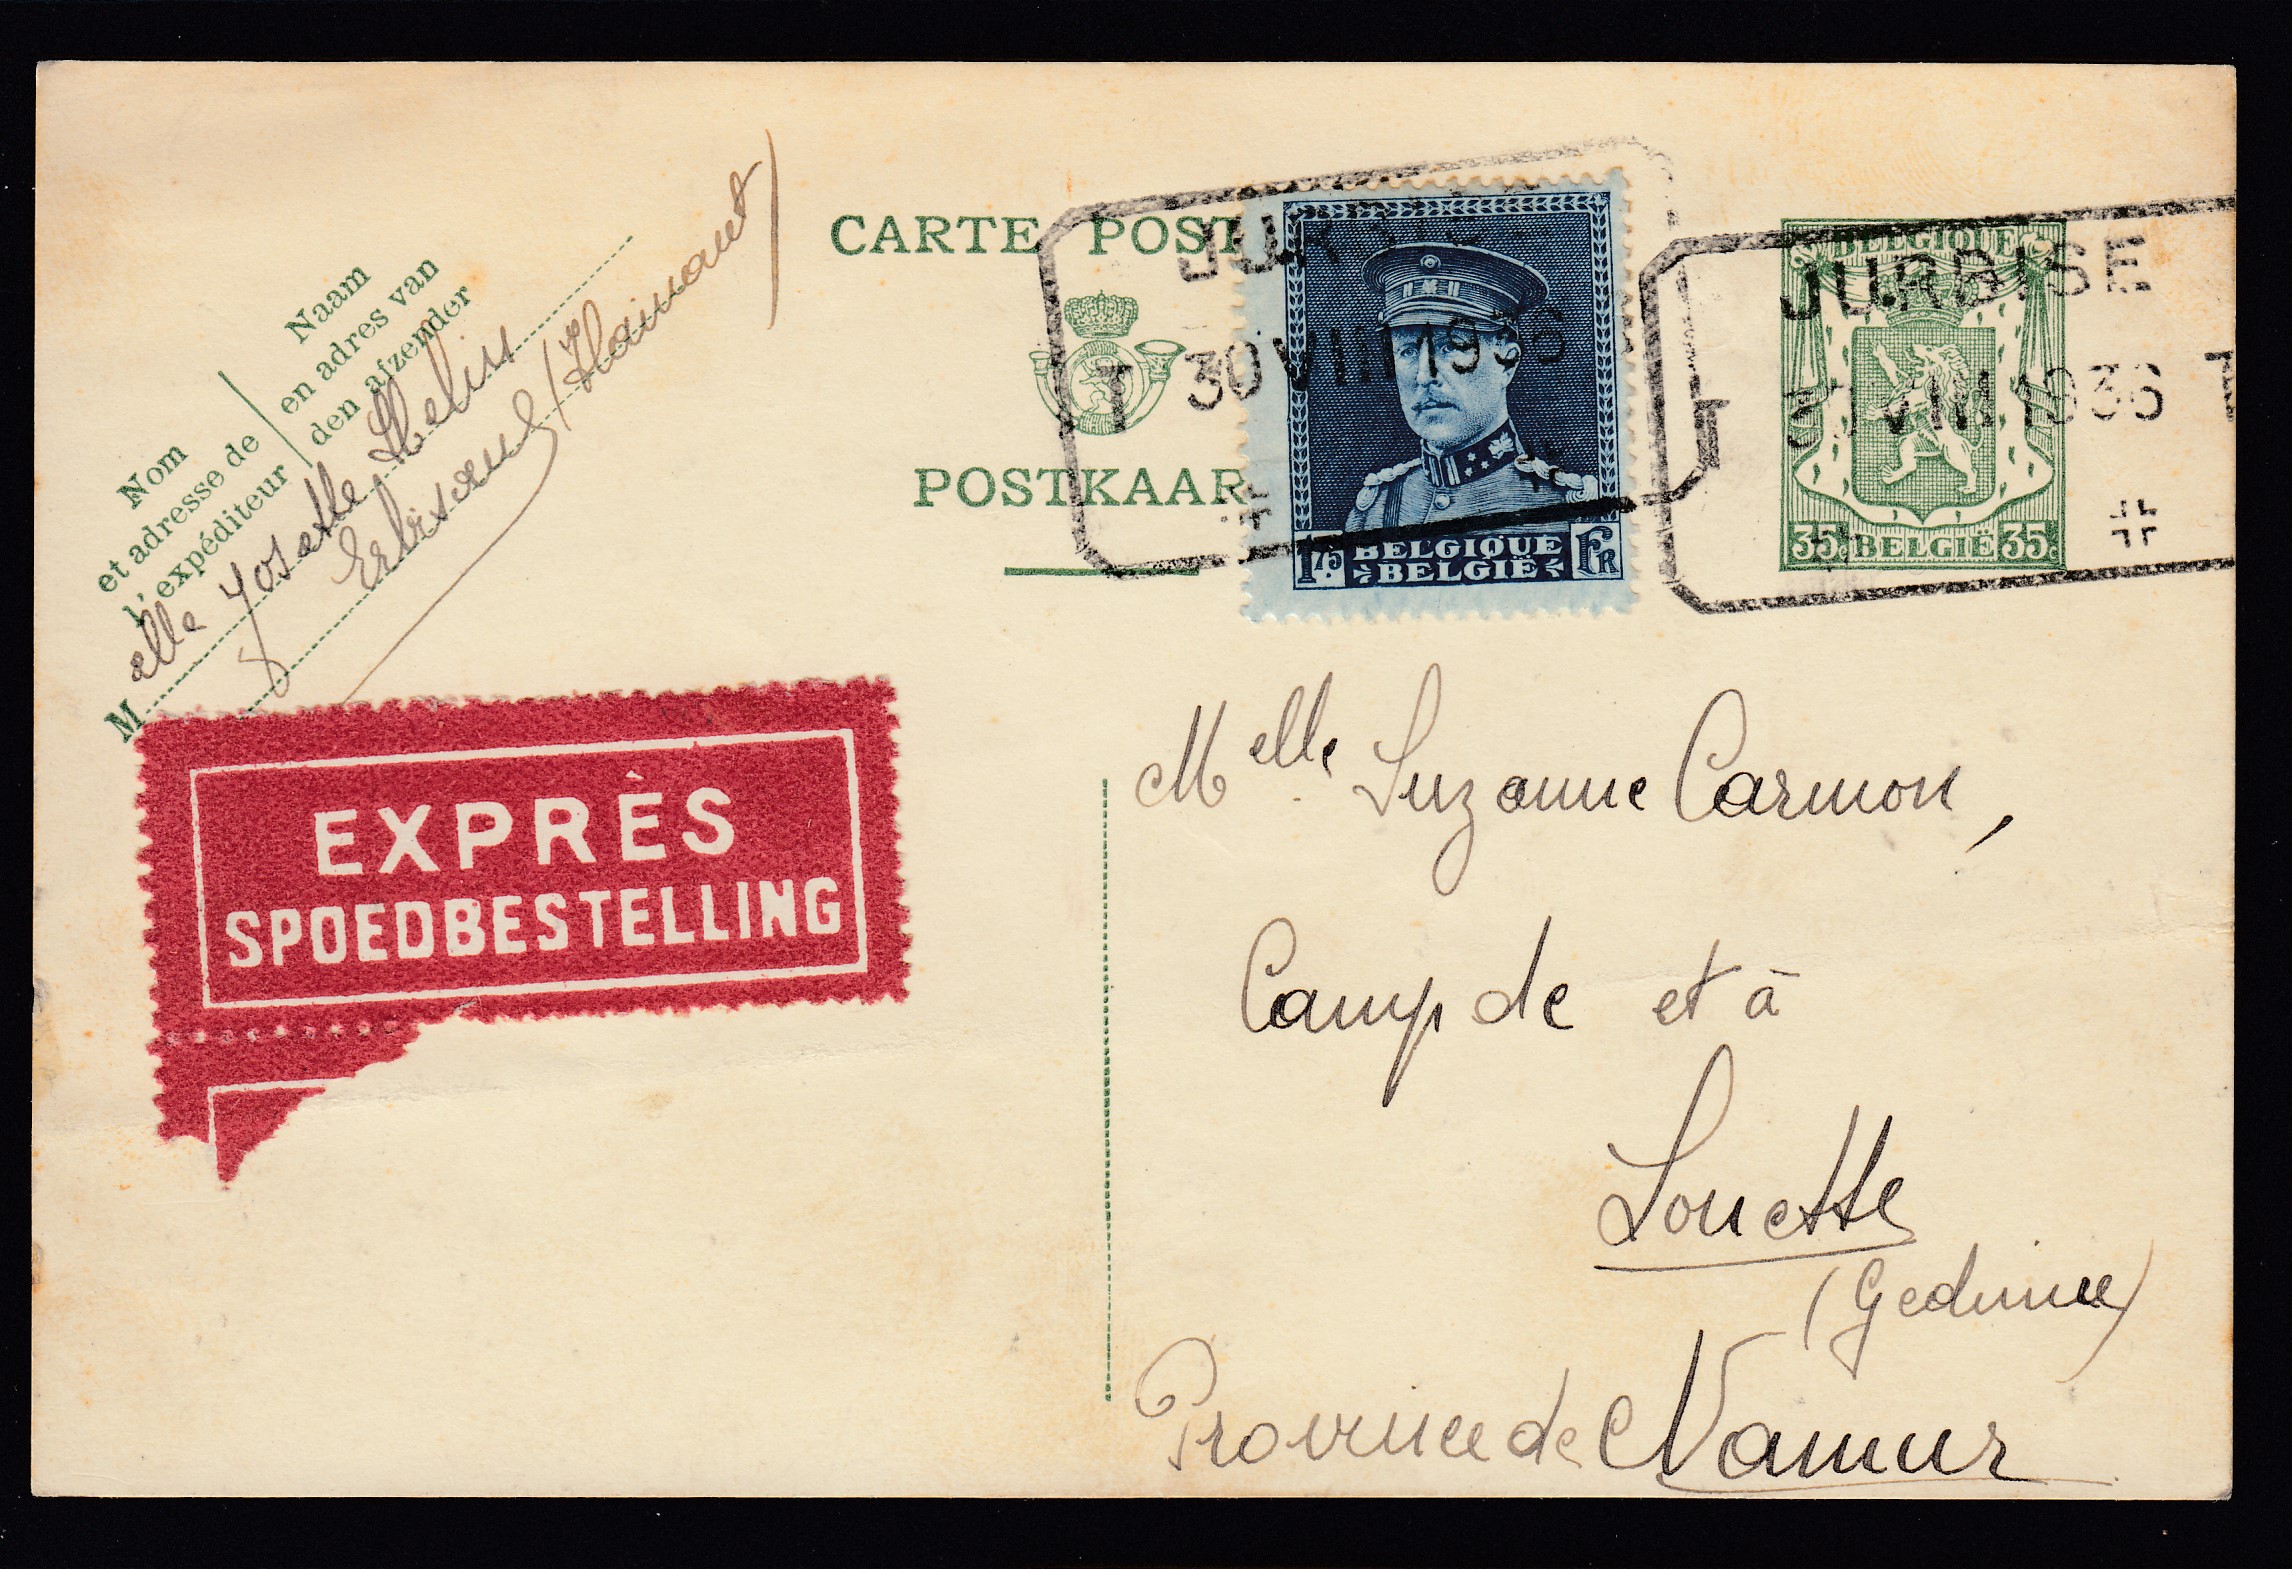 CARTE POST
POSTKAAR
Naam
en adres van
den afzender
Nom
et adresse de
l'expéditeur
M elle
Erbisoeul (Hainaut)
JURBISE
T 30 VIII 1936
BELGIQUE
BELGIË
FR
JURBISE
VIII 1936 T
BELGIQUE
35c BELGIË 35c
EXPRÈS
SPOEDBESTELLING
Melle Suzanne Carmon,
Camp de et à
Louette
(Gedinne)
Province de Namur